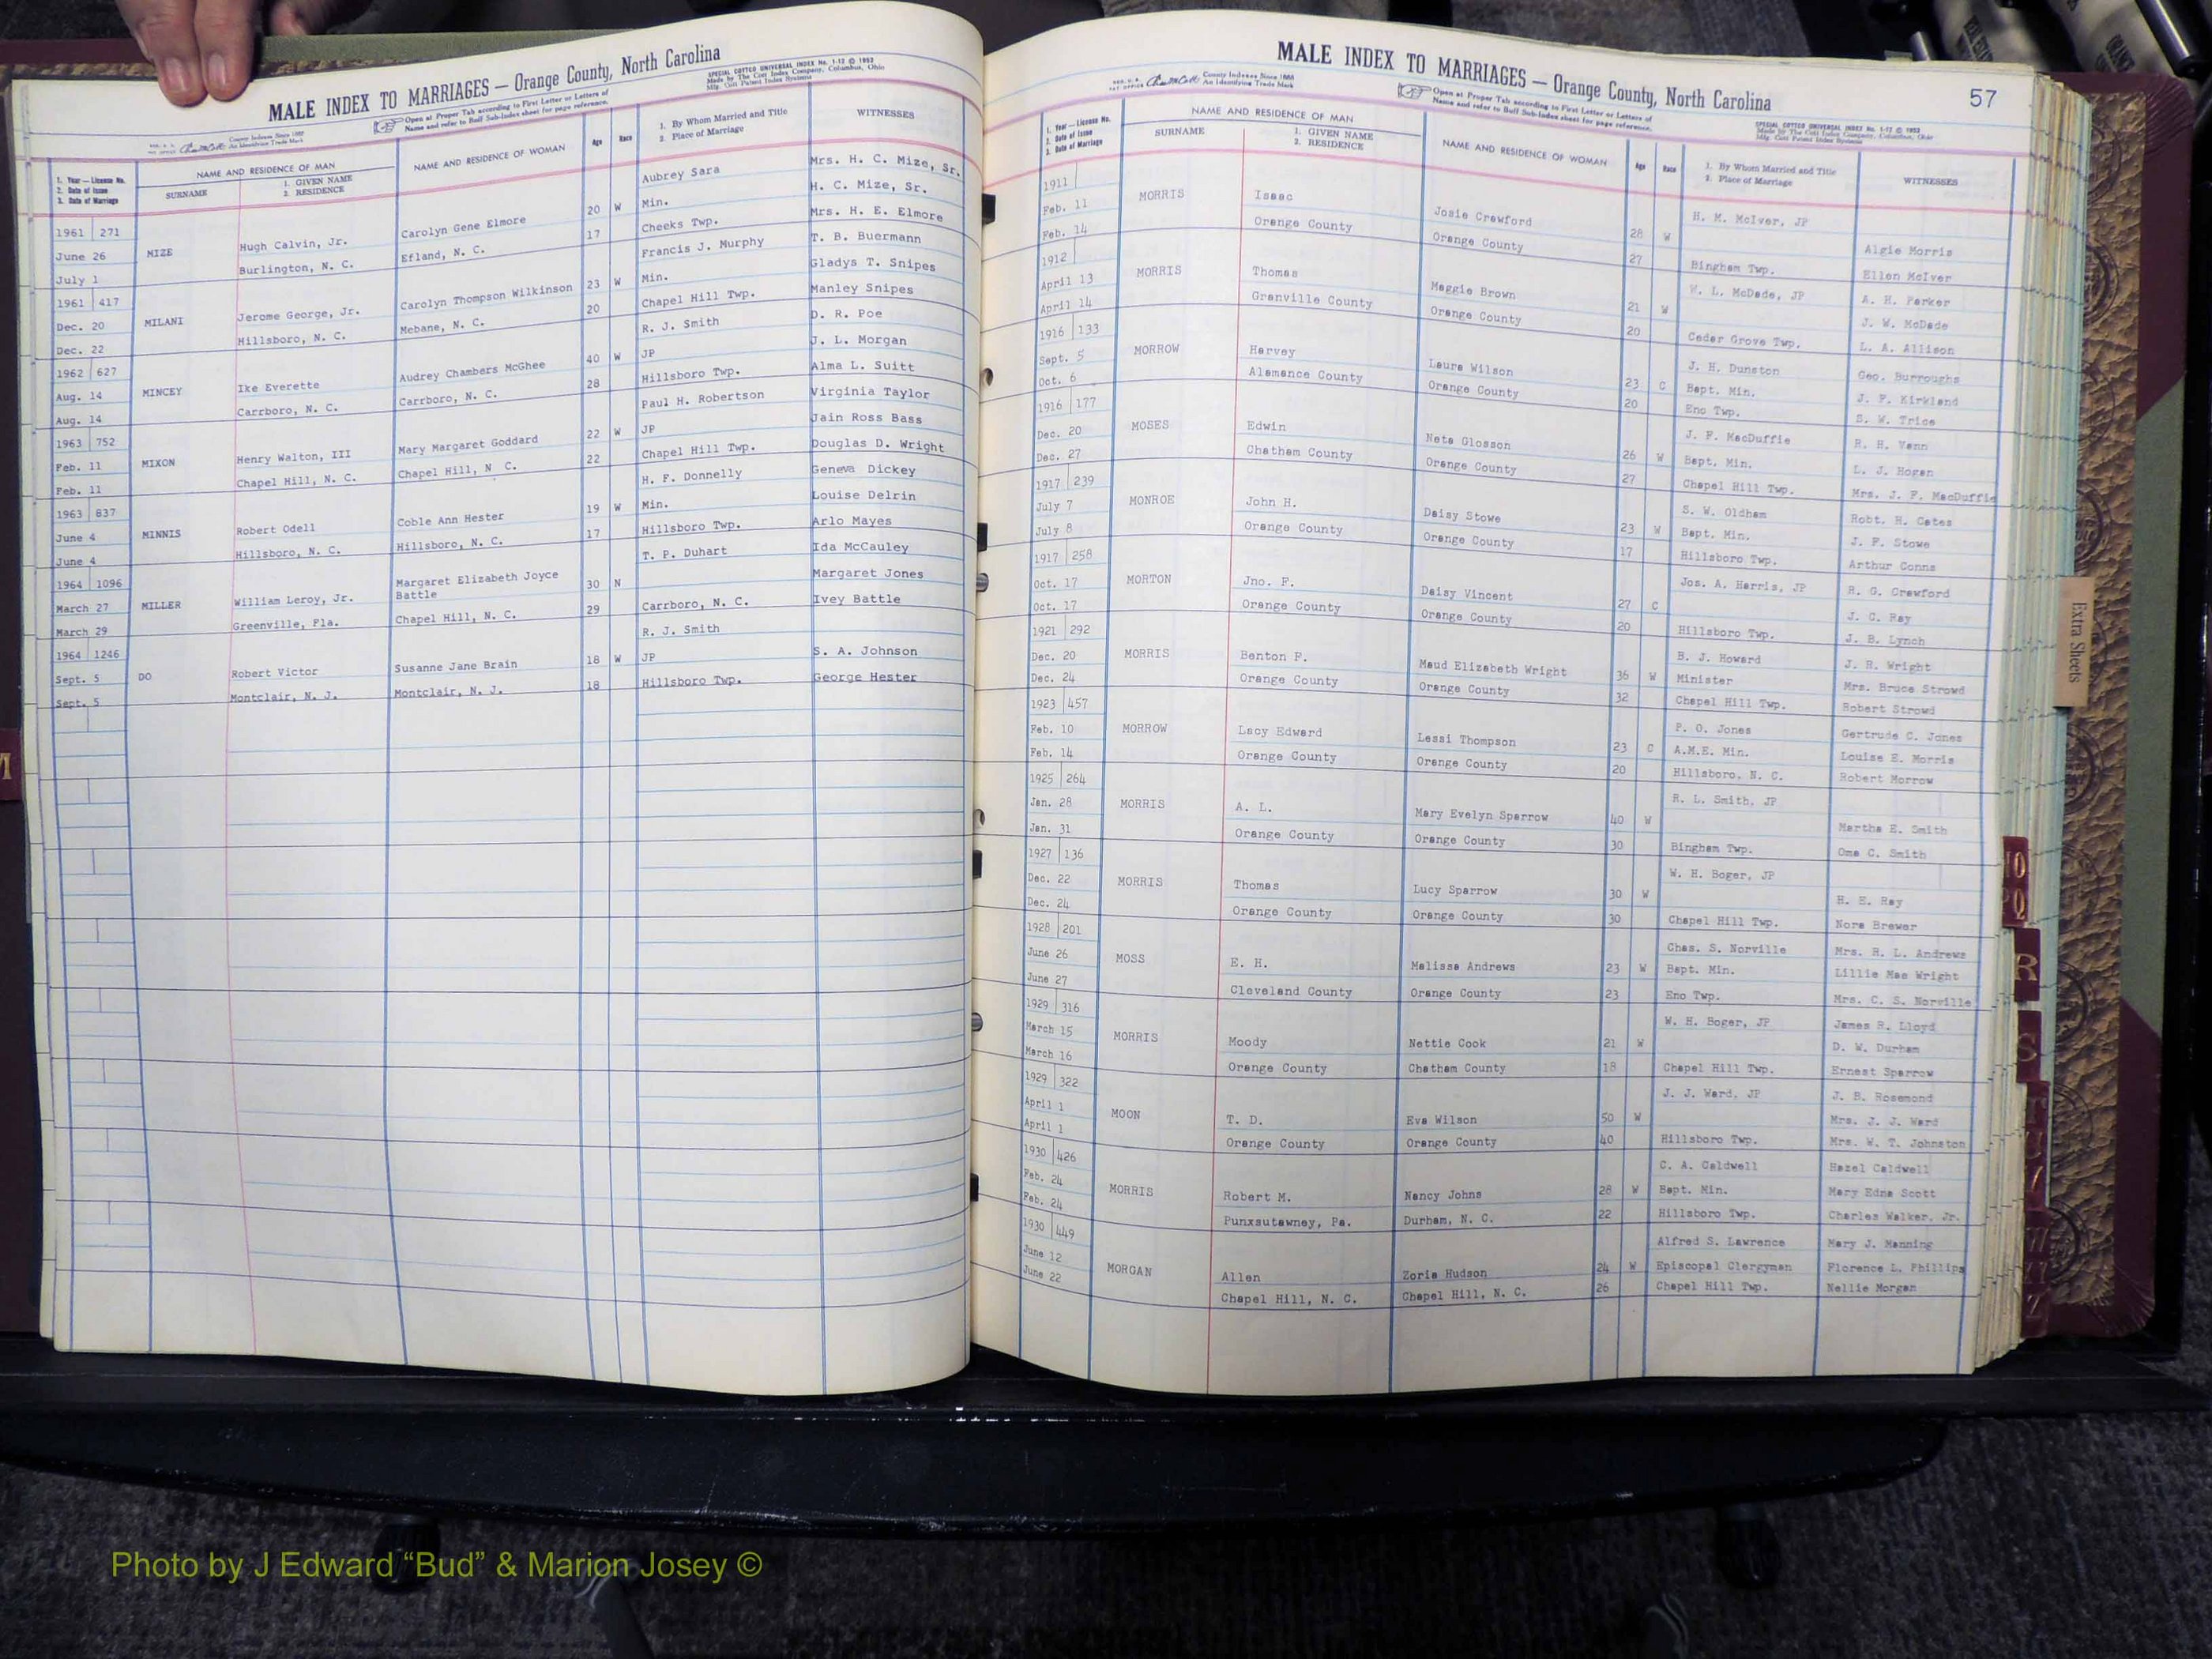 MALE INDEX TO MARRIAGES — Orange County, North Carolina
SPECIAL COTTCO UNIVERSAL INDEX No. 1-12 © 1953
Made by The Cott Index Company, Columbus, Ohio
Mfg. Cott Patent Index Systems
Open at Proper Tab according to First Letter or Letters of
Name and refer to Buff Sub-Index sheet for page reference.
County Indexes Since 1888
An Identifying Trade Mark
1. Year — License No.
2. Date of Issue
3. Date of Marriage
NAME AND RESIDENCE OF MAN
SURNAME
1. GIVEN NAME
2. RESIDENCE
NAME AND RESIDENCE OF WOMAN
Age
Race
1. By Whom Married and Title
2. Place of Marriage
WITNESSES
Aubrey Sara Mrs. H. C. Mize, Sr.
1961 271 Carolyn Gene Elmore 20 W Min. H. C. Mize, Sr.
June 26 MIZE Hugh Calvin, Jr. Efland, N. C. 17 Cheeks Twp. Mrs. H. E. Elmore
July 1 Burlington, N. C. Francis J. Murphy T. B. Buermann
1961 417 Carolyn Thompson Wilkinson 23 W Min. Gladys T. Snipes
Dec. 20 MILANI Jerome George, Jr. Mebane, N. C. 20 Chapel Hill Twp. Manley Snipes
Dec. 22 Hillsboro, N. C. R. J. Smith D. R. Poe
1962 627 Audrey Chambers McGhee 40 W JP J. L. Morgan
Aug. 14 MINCEY Ike Everette Carrboro, N. C. 28 Hillsboro Twp. Alma L. Suitt
Aug. 14 Carrboro, N. C. Paul H. Robertson Virginia Taylor
1963 752 Mary Margaret Goddard 22 W JP Jain Ross Bass
Feb. 11 MIXON Henry Walton, III Chapel Hill, N C. 22 Chapel Hill Twp. Douglas D. Wright
Feb. 11 Chapel Hill, N. C. H. F. Donnelly Geneva Dickey
1963 837 Coble Ann Hester 19 W Min. Louise Delrin
June 4 MINNIS Robert Odell Hillsboro, N. C. 17 Hillsboro Twp. Arlo Mayes
June 4 Hillsboro, N. C. T. P. Duhart Ida McCauley
1964 1096 Margaret Elizabeth Joyce Battle 30 N Margaret Jones
March 27 MILLER William Leroy, Jr. Chapel Hill, N. C. 29 Carrboro, N. C. Ivey Battle
March 29 Greenville, Fla. R. J. Smith
1964 1246 Susanne Jane Brain 18 W JP S. A. Johnson
Sept. 5 DO Robert Victor Montclair, N. J. 18 Hillsboro Twp. George Hester
Sept. 5 Montclair, N. J.
MALE INDEX TO MARRIAGES — Orange County, North Carolina
57
County Indexes Since 1888
An Identifying Trade Mark
Open at Proper Tab according to First Letter or Letters of
Name and refer to Buff Sub-Index sheet for page reference.
SPECIAL COTTCO UNIVERSAL INDEX No. 1-12 © 1953
Made by The Cott Index Company, Columbus, Ohio
Mfg. Cott Patent Index Systems
1. Year — License No.
2. Date of Issue
3. Date of Marriage
NAME AND RESIDENCE OF MAN
SURNAME
1. GIVEN NAME
2. RESIDENCE
NAME AND RESIDENCE OF WOMAN
Age
Race
1. By Whom Married and Title
2. Place of Marriage
WITNESSES
1911 H. M. McIver, JP
Feb. 11 MORRIS Isaac Josie Crawford 28 W Algie Morris
Feb. 14 Orange County Orange County 27 Bingham Twp. Ellen McIver
1912 W. L. McDade, JP A. H. Parker
April 13 MORRIS Thomas Maggie Brown 21 W J. W. McDade
April 14 Granville County Orange County 20 Cedar Grove Twp. L. A. Allison
1916 133 J. H. Dunston Geo. Burroughs
Sept. 5 MORROW Harvey Laura Wilson 23 C Bapt. Min. J. F. Kirkland
Oct. 6 Alamance County Orange County 20 Eno Twp. S. W. Trice
1916 177 J. F. MacDuffie R. H. Venn
Dec. 20 MOSES Edwin Neta Glosson 26 W Bapt. Min. L. J. Hogan
Dec. 27 Chatham County Orange County 27 Chapel Hill Twp. Mrs. J. F. MacDuffie
1917 239 S. W. Oldham Robt. H. Cates
July 7 MONROE John H. Daisy Stowe 23 W Bapt. Min. J. F. Stowe
July 8 Orange County Orange County 17 Hillsboro Twp. Arthur Conns
1917 258 Jos. A. Harris, JP R. G. Crawford
Oct. 17 MORTON Jno. F. Daisy Vincent 27 C J. C. Ray
Oct. 17 Orange County Orange County 20 Hillsboro Twp. J. B. Lynch
1921 292 B. J. Howard J. R. Wright
Dec. 20 MORRIS Benton F. Maud Elizabeth Wright 36 W Minister Mrs. Bruce Strowd
Dec. 24 Orange County Orange County 32 Chapel Hill Twp. Robert Strowd
1923 457 P. O. Jones Gertrude C. Jones
Feb. 10 MORROW Lacy Edward Lessi Thompson 23 C A.M.E. Min. Louise E. Morris
Feb. 14 Orange County Orange County 20 Hillsboro, N. C. Robert Morrow
1925 264 R. L. Smith, JP
Jan. 28 MORRIS A. L. Mary Evelyn Sparrow 40 W Martha E. Smith
Jan. 31 Orange County Orange County 30 Bingham Twp. Oma C. Smith
1927 136 W. H. Boger, JP
Dec. 22 MORRIS Thomas Lucy Sparrow 30 W H. E. Ray
Dec. 24 Orange County Orange County 30 Chapel Hill Twp. Nora Brewer
1928 201 Chas. S. Norville Mrs. H. L. Andrews
June 26 MOSS E. H. Melissa Andrews 23 W Bapt. Min. Lillie Mae Wright
June 27 Cleveland County Orange County 23 Eno Twp. Mrs. C. S. Norville
1929 316 W. H. Boger, JP James R. Lloyd
March 15 MORRIS Moody Nettie Cook 21 W D. W. Durham
March 16 Orange County Chatham County 18 Chapel Hill Twp. Ernest Sparrow
1929 322 J. J. Ward, JP J. B. Rosemond
April 1 MOON T. D. Eva Wilson 50 W Mrs. J. J. Ward
April 1 Orange County Orange County 40 Hillsboro Twp. Mrs. W. T. Johnston
1930 426 C. A. Caldwell Hazel Caldwell
Feb. 24 MORRIS Robert M. Nancy Johns 28 W Bapt. Min. Mary Edna Scott
Feb. 24 Punxsutawney, Pa. Durham, N. C. 22 Hillsboro Twp. Charles Walker, Jr.
1930 449 Alfred S. Lawrence Mary J. Manning
June 12 MORGAN Allen Zoria Hudson 24 W Episcopal Clergyman Florence L. Phillips
June 22 Chapel Hill, N. C. Chapel Hill, N. C. 26 Chapel Hill Twp. Nellie Morgan
Extra Sheets
R
S
Photo by J Edward “Bud” & Marion Josey ©